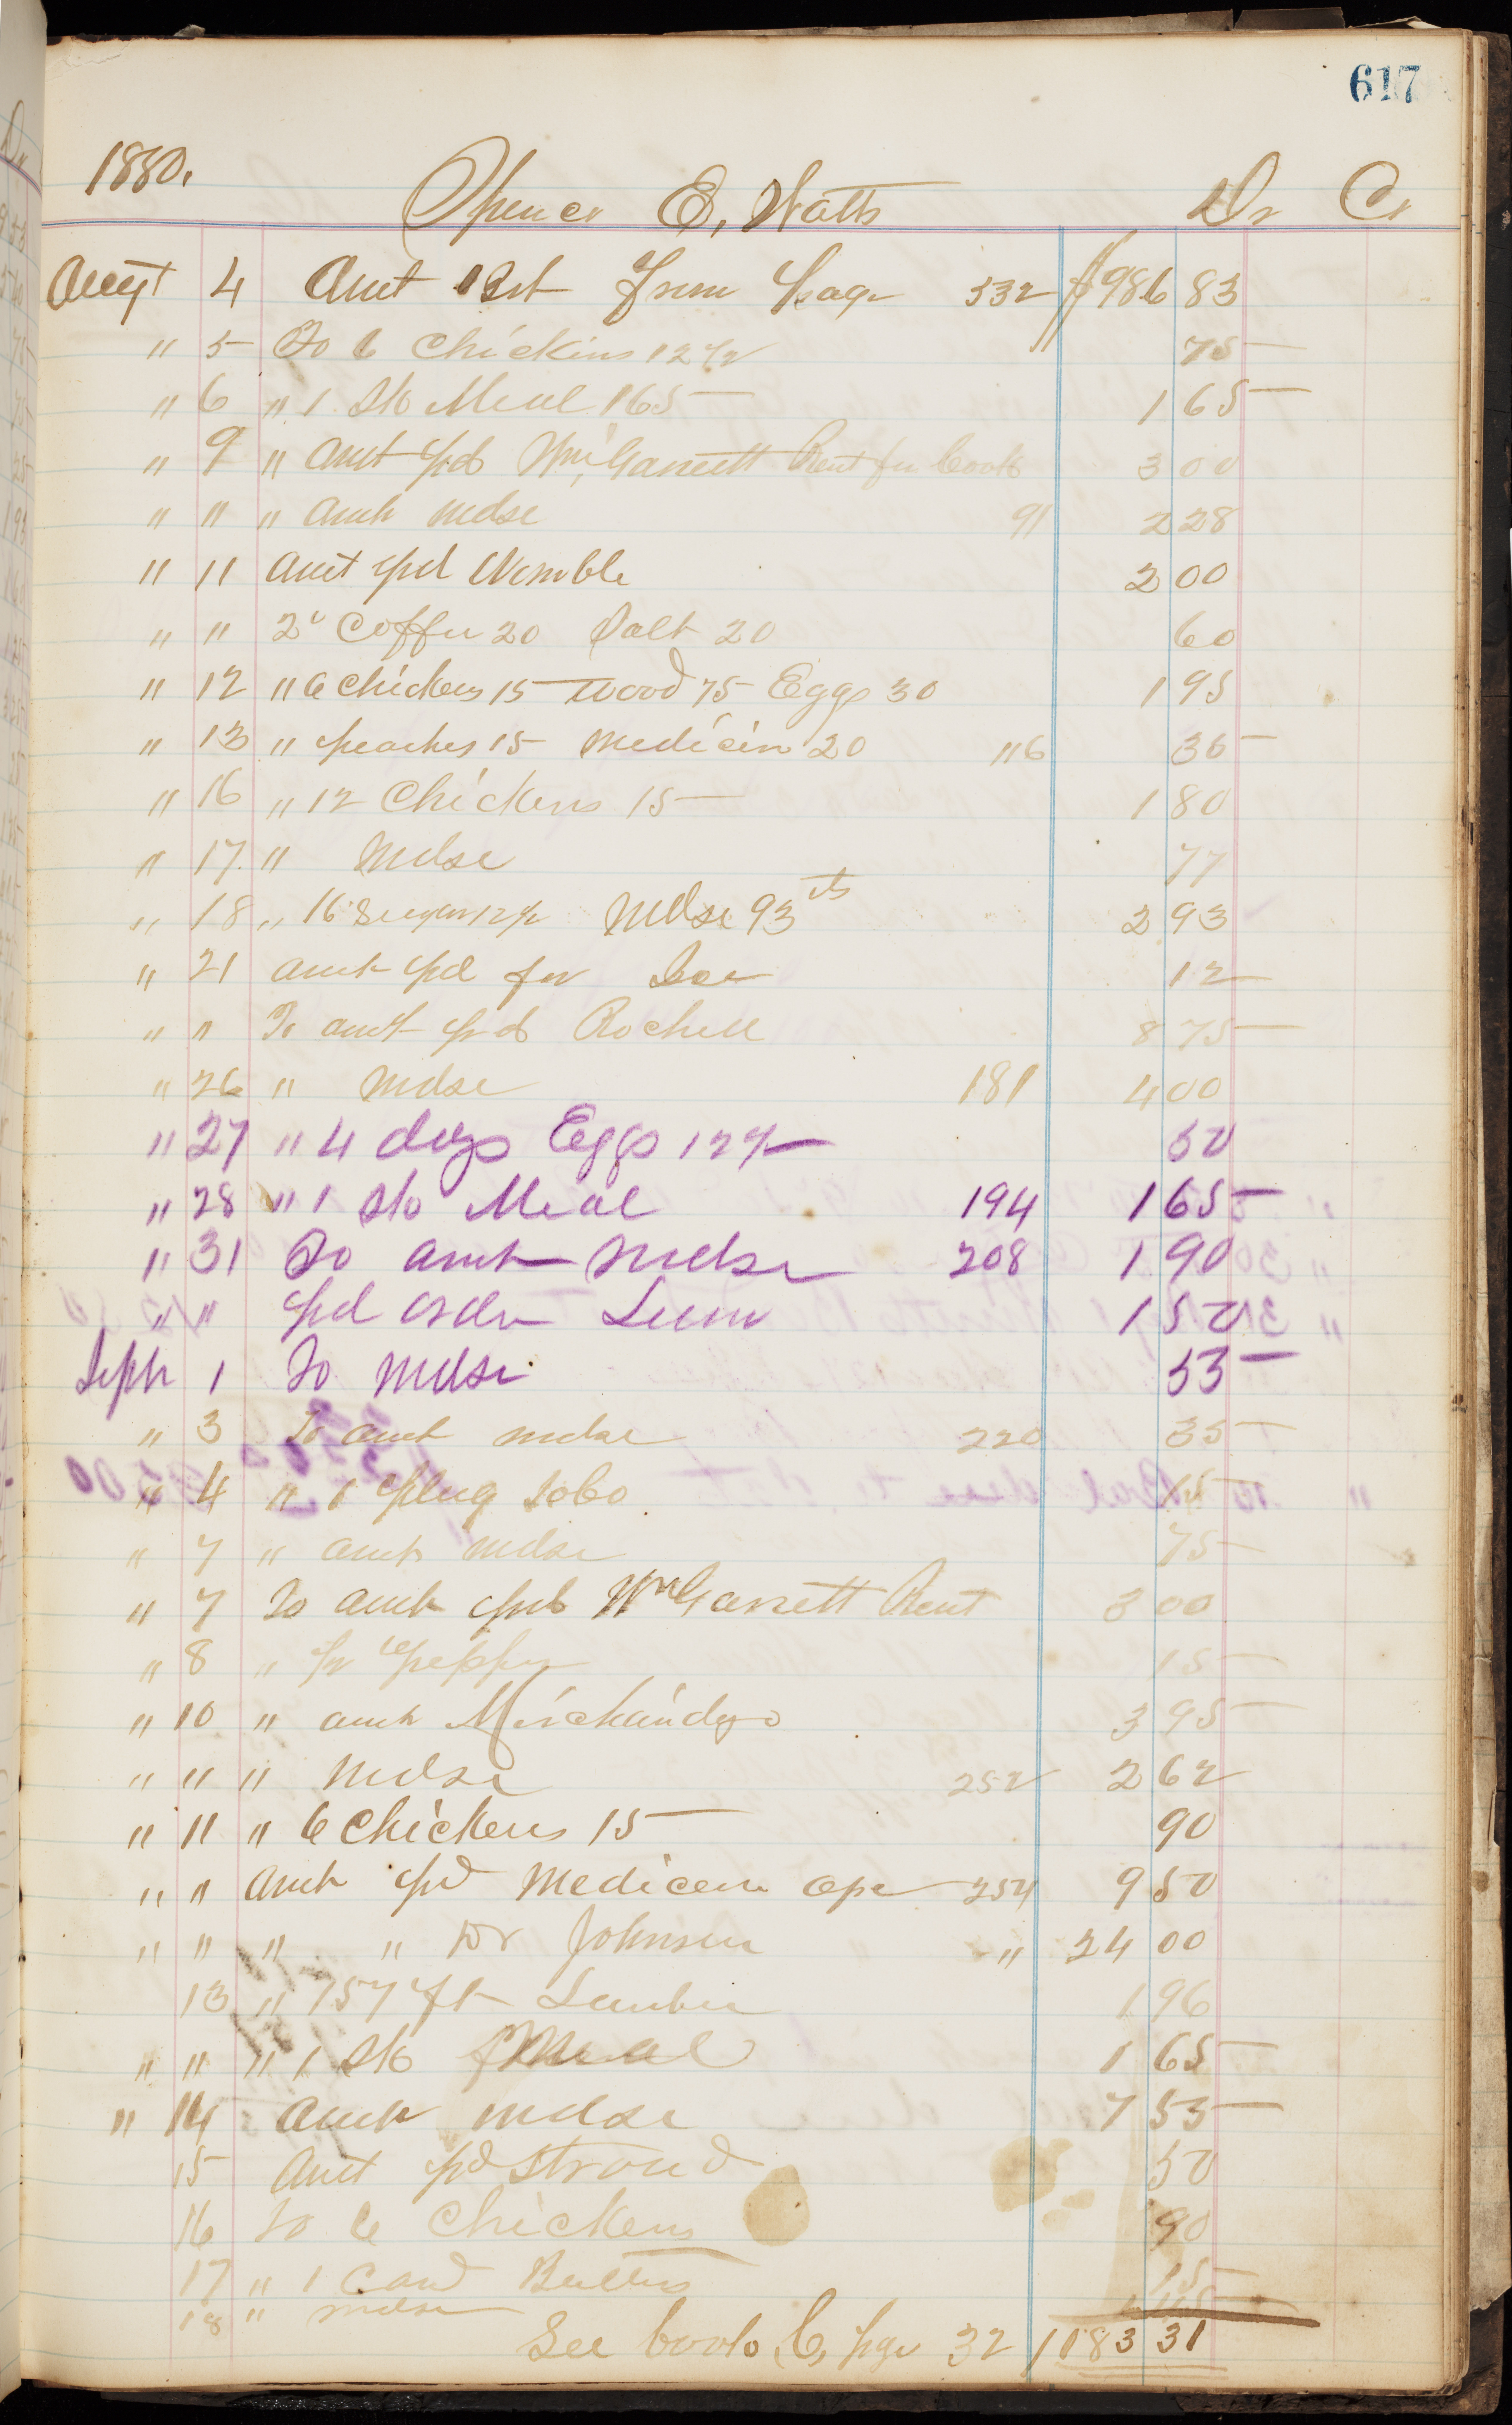 617
1880. Spencer E, Watts Dr Cr
Augt 4 Amt Brt from Page 532 $986 83
" 5 To 6 Chickins 12½ 75
" 6 " 1 Sk Meal 165 1 65
" 9 " Amt pd Wm, Garrett Rent for Cook 3 00
" " " Amt Mdse 91 2 28
" 11 Amt pd Womble 2 00
" " 2 Coffee 20 Salt 20 60
" 12 " 6 Chickens 15 Wood 75 Eggs 30 1 95
" 13 " peaches 15 Medicin 20 116 35
" 16 " 12 Chickens 15 1 80
" 17 " Mdse 77
" 18 " 16 Sugar 12½ Mdse 93 cts 2 93
" 21 Amt pd for 12
" " To amt pd Rochell 8 75
" 26 " Mdse 181 4 00
" 27 " 4 dozs Eggs 12½ 50
" 28 " 1 Sk Meal 194 1 65
" 31 To Amt Mdse 208 1 90
" " pd Order 1 50
Sept 1 To Mdse 55
" 3 To amt mdse 220 35
" 4 " 1 plug Tobo 15
" 7 " amt mdse 75
" 7 To amt pd Wm Garrett Rent 3 00
" 8 " pepper 15
" 10 " amt Merchandys 3 95
" " " Mdse 252 2 62
" 11 " 6 Chickens 15 90
" " Amt pd Medicin 254 9 50
" " " " Dr Johnson " 24 00
13 " 157 ft Lumber 1 96
" " " 1 Sk Meal 1 65
" 14 Amt mdse 7 55
15 Amt pd Stroud 50
16 To 6 Chickens 90
17 " 1 Butter 15
18 " mdse
See book C, page 32 1183 31